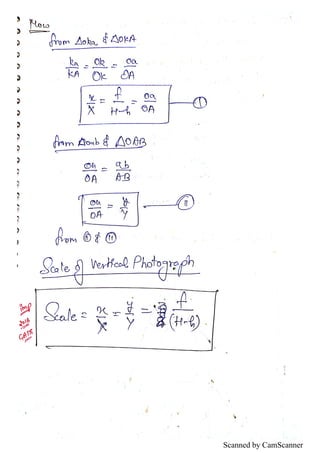 Now
from Δoka & ΔOKA
ka/KA = Ok/OK = oa/OA
x/X = f/H-h = oa/OA — I
from Δoab & ΔOAB
oa/OA = ab/AB
oa/OA = y/Y — II
from I & II
Scale of Vertical Photograph
Imp
2018
GATE
Scale = x/X = y/Y = f/(H-h)
Scanned by CamScanner